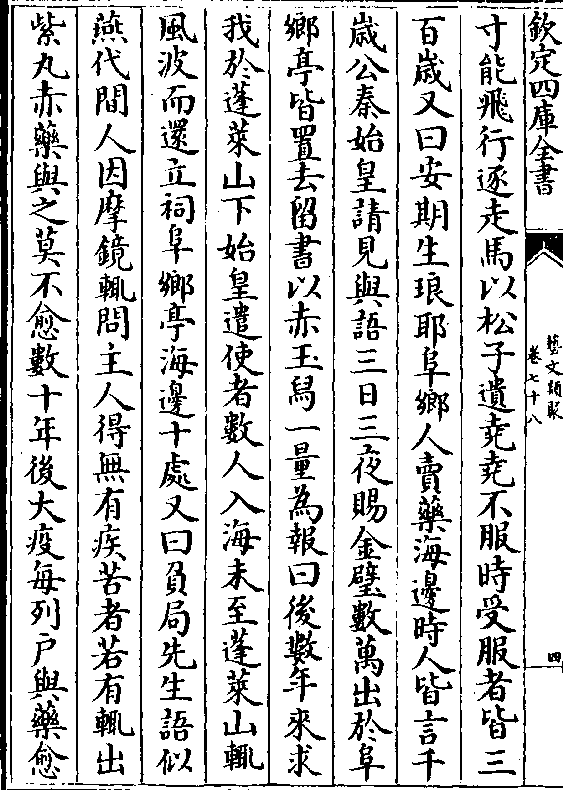 欽定四庫全書
藝文類聚
卷七十八
四
寸能飛行逐走馬以松子遺堯堯不服時受服者皆三
百歲又曰安期生琅耶阜鄉人賣藥海邊時人皆言千
歲公秦始皇請見與語三日三夜賜金璧數萬出於阜
鄉亭皆置去留書以赤玉舄一量為報曰後數年來求
我於蓬萊山下始皇遣使者數人入海未至蓬萊山輒
風波而還立祠阜鄉亭海邊十處又曰負局先生語似
燕代間人因摩鏡輒問主人得無有疾苦者若有輒出
紫丸赤藥與之莫不愈數十年後大疫每列户與藥愈